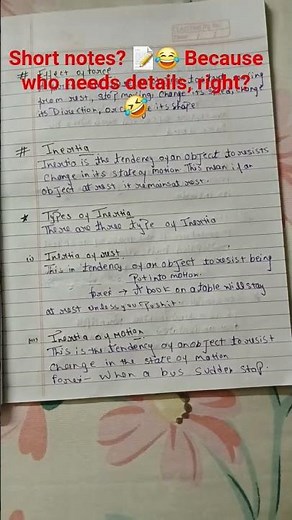 Short notes? 📝😂 Because
who needs details, right?
🤣
# Effect of force
from rest, stop moving, change its speed, change
its Direction, or its shape
# Ineatia
Inertia is the tendency of an object to resists
change in its state of motion This mean if an
object at rest it remains at rest.
* Types of Inertia
There are three type of Inertia
(i) Inertia of rest
This is tendency of an object to resist being
Put into motion.
forex → A book on a table will stay
at rest unless you Push it.
Inertia of Motion
This is the tendency of an object to resist
change in the state of motion
forex - When a bus sudden stop.